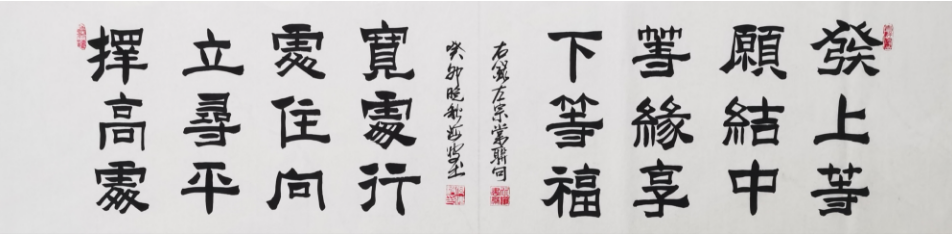 發上等
願結中
等緣享
下等福
右錄左宗棠聯句
擇高處
立尋平
處住向
寬處行
癸卯晚秋